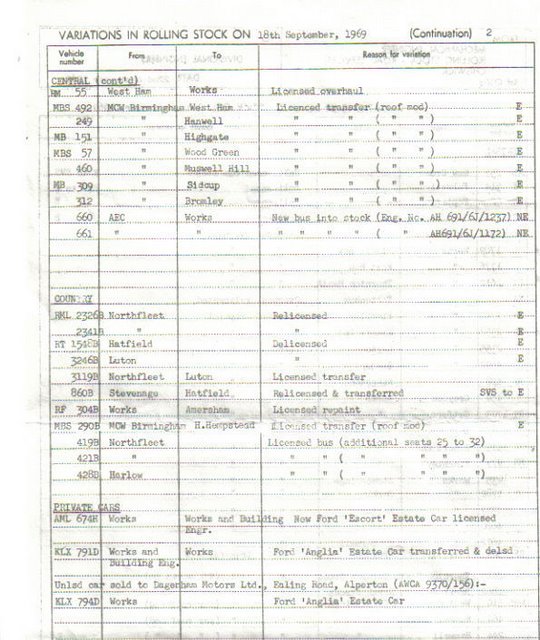 VARIATIONS IN ROLLING STOCK ON 18th September, 1969 (Continuation) 2
Vehicle number From To Reason for variation
CENTRAL (cont'd)
RM 55 West Ham Works Licensed overhaul
MBS 492 MCW Birmingham West Ham Licenced transfer (roof mod) E
249 " Hanwell " " ( " " ) E
MB 151 " Highgate " " ( " " ) E
MBS 57 " Wood Green " " ( " " ) E
460 " Muswell Hill " " ( " " ) E
MB 309 " Sidcup " " ( " " ) E
312 " Bromley " " ( " " ) E
660 AEC Works New bus into stock (Eng. No. AH 691/6J/1237) NE
661 " " " " " " ( " AH691/6J/1172) NE
COUNTRY
RML 2326B Northfleet Relicensed E
2341B " " E
RT 1548B Hatfield Delicensed E
3246B Luton " E
3119B Northfleet Luton Licensed transfer
860B Stevenage Hatfield Relicensed & transferred SVS to E
RF 304B Works Amersham Licensed repaint
MBS 290B MCW Birmingham H.Hempstead Licensed transfer (roof mod) E
419B Northfleet Licensed bus (additional seats 25 to 32)
421B " " " ( " " " ")
428B Harlow " " ( " " " ")
PRIVATE CARS
AML 674H Works Works and Building New Ford 'Escort' Estate Car licensed
Engr.
KLX 791D Works and Works Ford 'Anglia' Estate Car transferred & delsd
Building Eng.
Unlsd car sold to Dagenham Motors Ltd., Ealing Road, Alperton (AWCA 9370/156):-
KLX 794D Works Ford 'Anglia' Estate Car